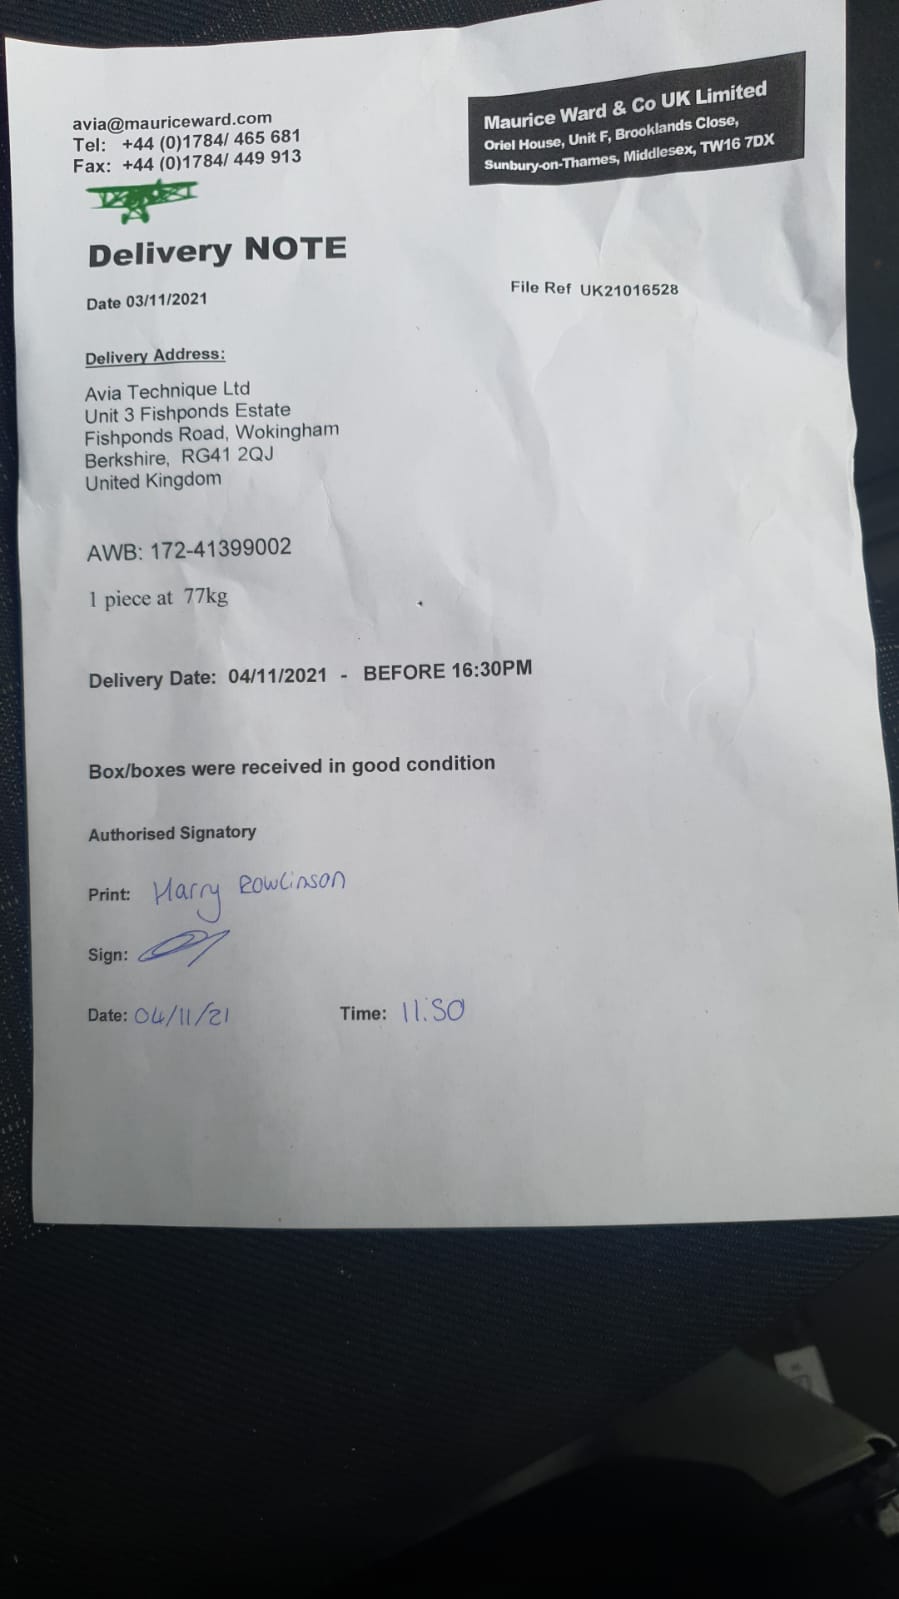 avia@mauriceward.com
Tel: +44 (0)1784/ 465 681
Fax: +44 (0)1784/ 449 913
Maurice Ward & Co UK Limited
Oriel House, Unit F, Brooklands Close,
Sunbury-on-Thames, Middlesex, TW16 7DX
Delivery NOTE
Date 03/11/2021
File Ref UK21016528
Delivery Address:
Avia Technique Ltd
Unit 3 Fishponds Estate
Fishponds Road, Wokingham
Berkshire, RG41 2QJ
United Kingdom
AWB: 172-41399002
1 piece at 77kg
Delivery Date: 04/11/2021 - BEFORE 16:30PM
Box/boxes were received in good condition
Authorised Signatory
Print: Harry Rowlinson
Sign:
Date: 04/11/21 Time: 11:50